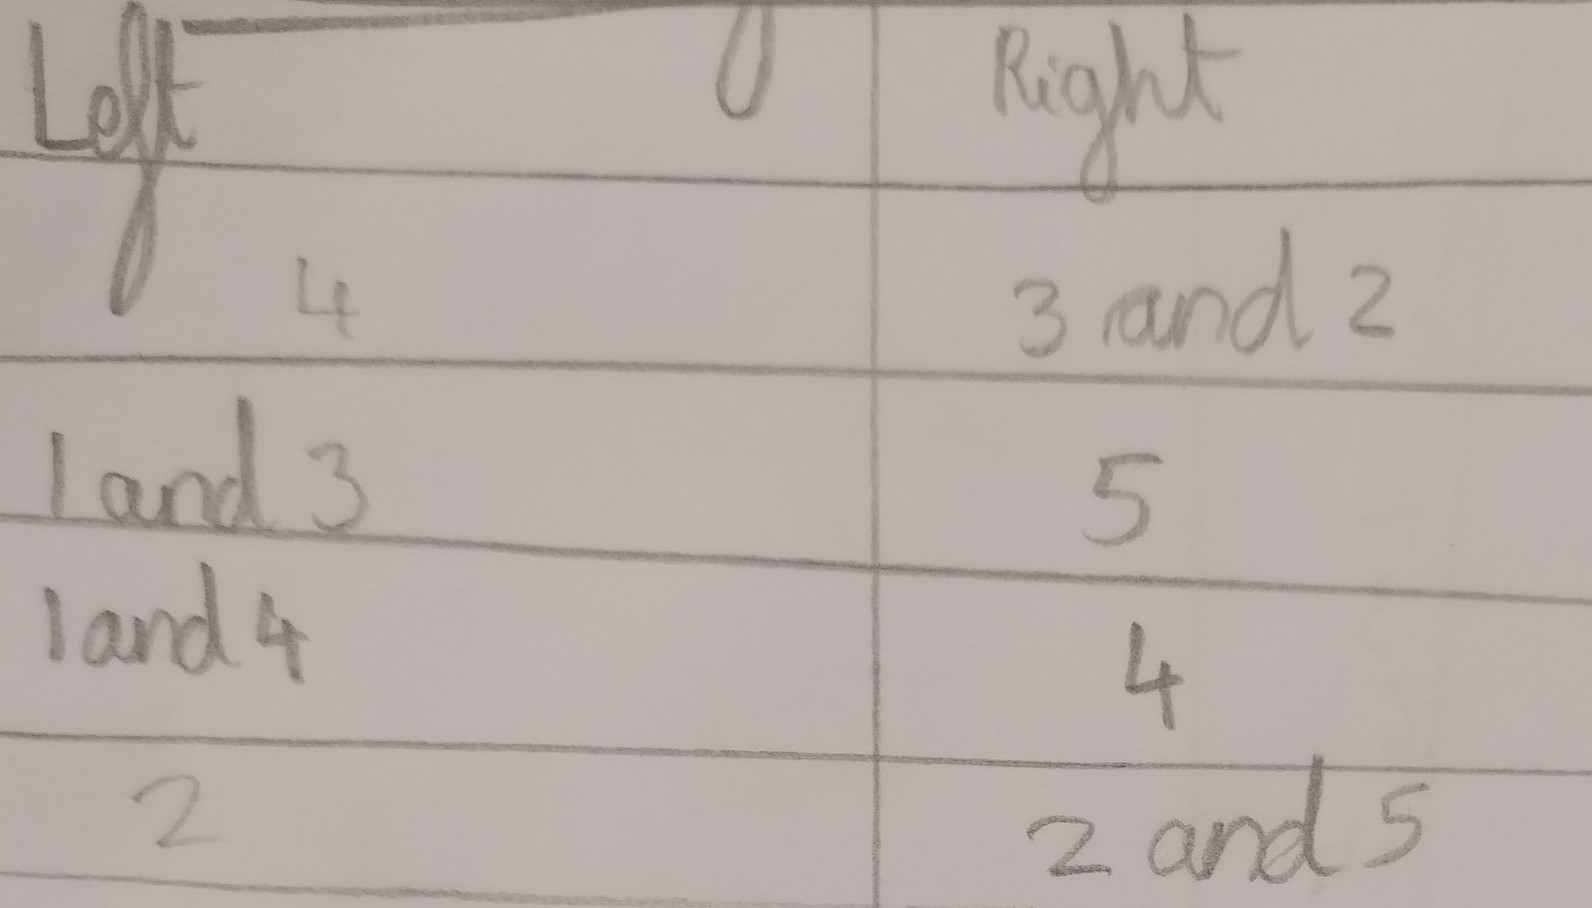 Left Right
4 3 and 2
1 and 3 5
1 and 4 4
2 2 and 5